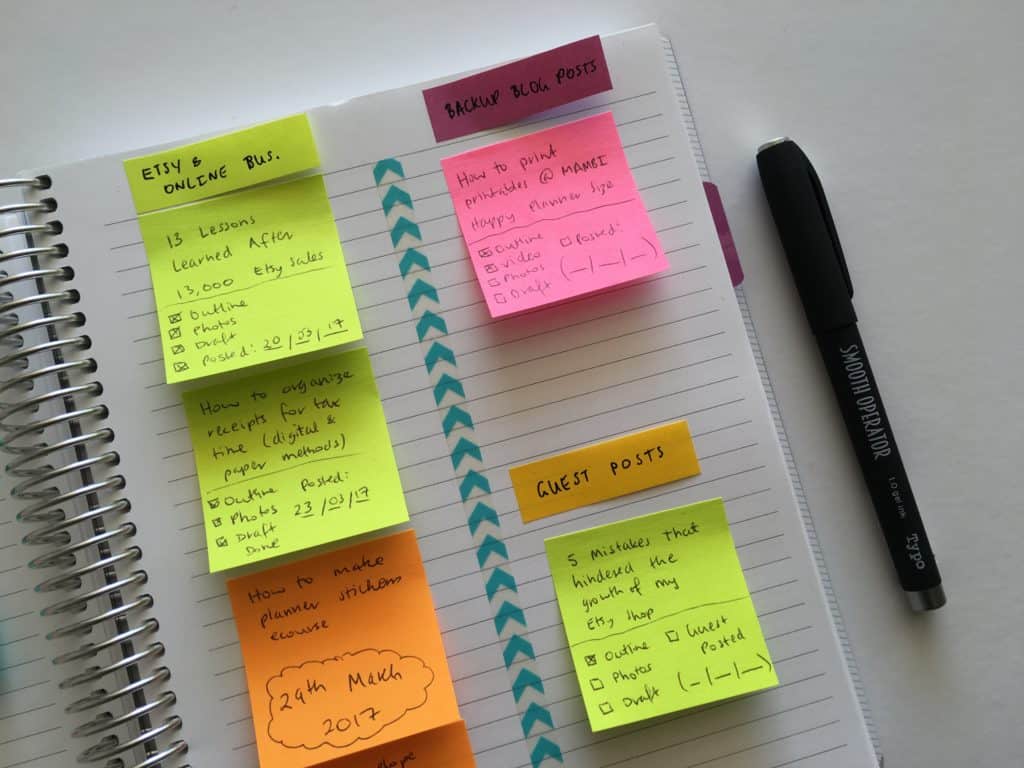 ETSY &
ONLINE BUS.
13 Lessons
Learned After
13,000 Etsy sales
Outline
Photos
Draft
Posted: 20/03/17
How to organize
receipts for tax
time (digital &
paper methods)
Outline Posted:
Photos 23/03/17
Draft
Done
How to make
planner stickers
ecourse
29th March
2017
BACKUP BLOG POSTS
How to print
printables @ MAMBI
Happy Planner Size
Outline Posted:
Video
Photos (_/_/_)
Draft
GUEST POSTS
5 Mistakes that
hindered the
growth of my
Etsy shop
Outline Guest
Photos Posted
Draft (_/_/_)
SMOOTH OPERATOR
1.0 gel ink
Typo